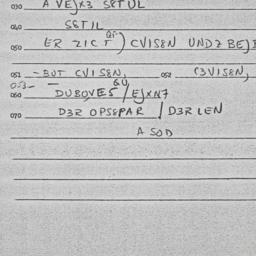 030 A VEJX3 S8TUL
040 S8TIL
050 ER ZICT) CVIS8N UNDZ BEJ
051 -BUT CVIS8N, 052 C3VIS8N,
053-
060 DUBOVES / EJXN7
070 D3R OPS8PAR / D3R LEN
A SOD